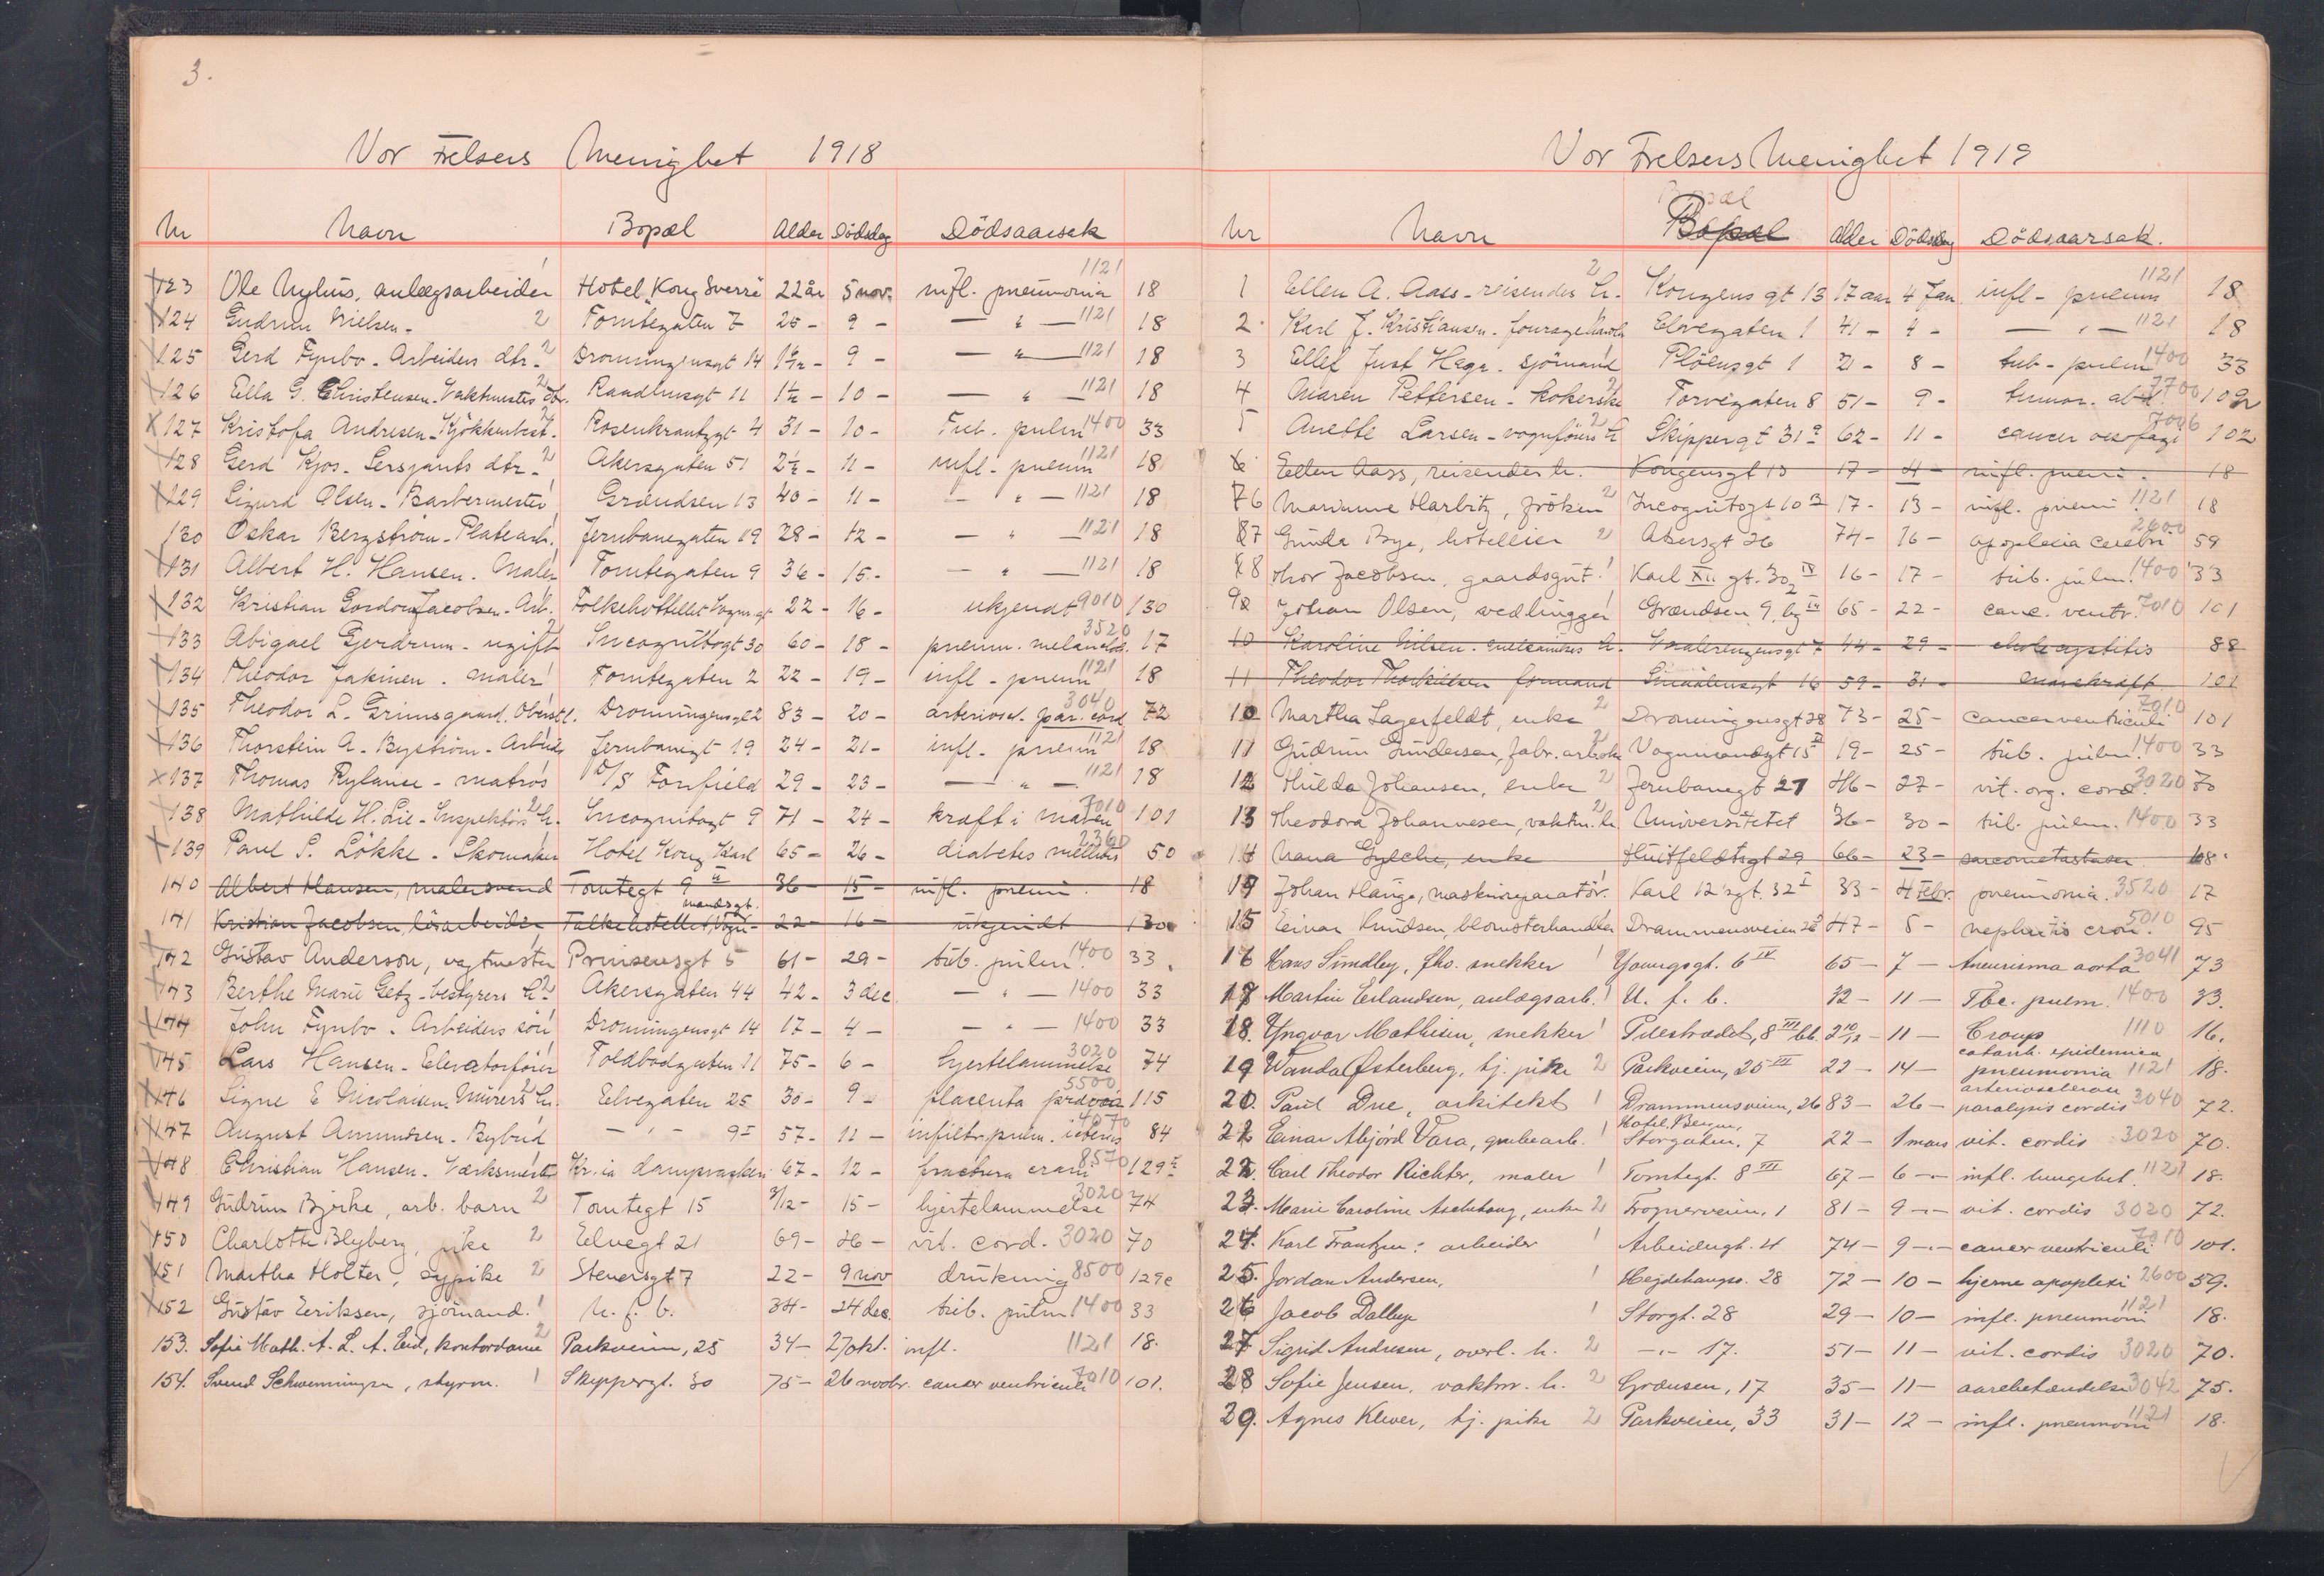 3.
Vor Frelsers Menighet 1918
Nr Navn Bopæl Alder Dödsdag Dödsaarsak
123 Ole Nyhus, anlægsarbeider 1 Hotel "Kong Sverre" 22 år 5 nov. infl. pneumonia 1121 18
124 Gudrun Nielsen - 2 Tomtegaten 7 25 - 9 - — " — 1121 18
125 Gerd Fynbo - Arbeiders dtr. 2 Dronningensgt 14 9 - — " — 1121 18
126 Ella G. Christensen - Vaktmesters dtr. 2 Raadhusgt 11 1½ - 10 - — " — 1121 18
127 Kristofa Andresen - Kjökkenbest. 2 Rosenkrantzgt 4 31 - 10 - Tub. pulm 1400 33
128 Gerd Kjos - Sersjants dtr - 2 Akersgaten 51 2½ - 11 - infl. pneum 1121 18
129 Sigurd Olsen - Barbermester 1 Grændsen 13 40 - 11 - — " — 1121 18
130 Oskar Bergström - Platearb. Jernbanegaten 19 28 - 12 - — " — 1121 18
131 Albert H. Hansen. Maler Tomtegaten 9 36 - 15 - — " — 1121 18
132 Kristian Gordon Jacobsen - Arb. Folkehotellet Vognm.gt 22 - 16 - ukjendt 9010 130
133 Abigael Gjerdrum - ugift 2 Incognitogt 30 60 - 18 - pneum. melancholi. 3520 17
134 Theodor Jakinen. maler 1 Tomtegaten 2 22 - 19 - infl - pneum 1121 18
135 Theodor L. Grimsgaard. Oberstl. Dronningensgt 2 83 - 20 - arterioscl. par. cord 3040 72
136 Thorstein A. Byström - Arbeid. Jernbanegt 19 24 - 21 - infl. pneum 1121 18
137 Thomas Rylance - matros D/S Fonfield 29 - 23 - — " — 1121 18
138 Mathilde H. Lie - Inspektörs h. 2 Incognitogt 9 71 - 24 - kraft i maven 7010 101
139 Paul S. Lökke - Skomaker Hotel Kong Karl 65 - 26 - diabetes mellitus 2360 50
140 Albert Hansen, malersvend Tomtegt 9 IV 36 - 15 - infl. pneum. 18
141 Kristian Jacobsen, lösarbeider Folkehotellet, Vognmandsgt. 22 - 16 - ukjendt 130
142 Gustav Anderson, vagtmester Prinsensgt 5 61 - 29 - tub. pulm. 1400 33.
143 Berthe Marie Getz - bestyrers h. 2 Akersgaten 44 42 - 3 dec. — " — 1400 33
144 John Fynbo - Arbeiders sön 1 Dronningensgt 14 17 - 4 - — " — 1400 33
145 Lars Hansen - Elevatorförer Toldbodgaten 11 75 - 6 - hjertelammelse 3020 74
146 Signe E Nicolaisen. Murers h. 2 Elvegaten 25 30 - 9 - placenta prævia 5500 115
147 August Amundsen - Bybud — " — 9 I 57 - 12 - infiltr. pulm. icterus 4070 84
148 Christian Hansen - Værksmester Kr.ia dampvaskeri 67 - 12 - fractura cranii 8570 129
149 Gudrun Bjerke, arb. barn 2 Tomtegt 15 3/12 - 15 - hjertelammelse 3020 74
150 Charlotte Blyberg, pike 2 Elvegt 21 69 - 26 - vit. cord. 3020 70
151 Martha Holter, sypike 2 Stenersgt 7 22 - 9 nov drukning 8500 129c
152 Gustav Eriksen, sjömand. 1 U. f. b. 34 - 24 dec. tub. pulm 1400 33
153. Sofie Math. A. L. A. Eid, kontordame 2 Parkveien, 25 34 - 27 okt. infl. 1121 18.
154. Svend Schwenningsen, styrm. 1 Skippergt. 30 75 - 26 novbr. cancer ventriculi 7010 101.
Vor Frelsers Menighet 1919
Bopæl
Nr Navn Bopæl Alder Dödsdag Dödsaarsak.
1 Ellen A. Aass - reisendes h. 2 Kongens gt 13 17 aar 4 Jan. infl - pneum 1121 18
2 Karl J. Kristiansen. fouragehandl. Elvegaten 1 41 - 4 - — " — 1121 18
3 Ellef Just Hage. sjömand Plöensgt 1 21 - 8 - tub - pulm 1400 33
4 Maren Pettersen - kokerske 2 Torvegaten 8 51 - 9 - tumor. abd. 7700 109
5 Anette Larsen - vognförers h 2 Skippergt 31 62 - 11 - cancer oesofagi 7006 102
6 Ellen Aass, reisendes h. Kongensgt 13 17 - 4 - infl. pneum. 18
6 Marianne Harbitz, fröken 2 Incognitogt 10 17 - 13 - infl. pneum 1121 18
7 Gunda Bye, hotellier 2 Akersgt 26 74 - 16 - apoplexia cerebri 2600 59
8 Thor Jacobsen, gaardsgut. 1 Karl XII gt. 30 IV 16 - 17 - tub. pulm. 1400 33
9 Johan Olsen, vedhugger 1 Grændsen 9, bg 65 - 22 - canc. ventr. 7010 101
10 Karoline Nilsen. h. Vaalerengensgt 7 44 - 29 - cholecystitis 88
11 Theodor Thorkildsen formand Smaalensgt 16 59 - 31 - mavekræft 101
10 Martha Lagerfeldt, enke 2 Dronningensgt 28 73 - 25 - cancer ventriculi 7010 101
11 Gudrun Gundersen, fabr. arbeid. 2 Vognmandsgt 15 19 - 25 - tub. pulm. 1400 33
12 Hulda Johansen, enke 2 Jernbanegt 21 46 - 27 - vit. org. cord. 3020 70
13 Theodora Johannesen, vaktm. h. 2 Universitetet 36 - 30 - tub. pulm. 1400 33
14 Nana Gylche, enke Huitfeldtsgt 29 66 - 23 - sarcometastaser 68
14 Johan Hauge, maskinreparatör. 1 Karl 12's gt. 32 I 33 - 4 Febr. pneumonia. 3520 17
15 Einar Knudsen, blomsterhandler Drammensveien 47 - 5 - nephritis cron. 5010 95
16 Hans Sundby, fhv. snekker 1 Youngsgt. 6 IV 65 - 7 - Aneurisma aorta 3041 73
17 Martin Erlandsen, anlægsarb. 1 U. f. b. 32 - 11 - Tbc. pulm. 1400 33.
18. Yngvar Mathisen, snekker 1 Pilestrædet, 8 III bb. 2 10/12 - 11 - Croup 1110 16.
19 Wanda Østerberg, tj. pike 2 Parkveien, 25 III 22 - 14 - catarrh. epidemica pneumonia 1121 18.
20. Paul Due, arkitekt 1 Drammensveien, 26 83 - 26 - arteriosclerose paralysis cordis 3040 72.
21 Einar Abjörd Vara, grubearb. 1 Hotel Bergen, Storgaten, 7 22 - 1 mars vit. cordis 3020 70.
22. Carl Theodor Richter, maler 1 Tomtegt. 8 III 67 - 6 - infl. lungebet. 1121 18.
23. Marie Caroline Aschehoug, enke 2 Frognerveien, 1 81 - 9 - vit. cordis 3020 72.
24. Karl Frantzen: arbeider 1 Arbeidergt. 4 74 - 9 - cancer ventriculi 7010 101.
25. Jordan Andersen, 1 Hegdehaugsv. 28 72 - 10 - hjerne apoplexi 2600 59.
26 Jacob Dalbye 1 Storgt. 28 29 - 10 - infl. pneumoni 1121 18.
27 Sigrid Andresen, overl. h. 2 — " — 17. 51 - 11 - vit. cordis 3020 70.
28 Sofie Jensen, vaktm. h. 2 Grænsen, 17 35 - 11 - aarebetændelse 3042 75.
29. Agnes Klever, tj. pike 2 Parkveien, 33 31 - 12 - infl. pneumoni 1121 18.